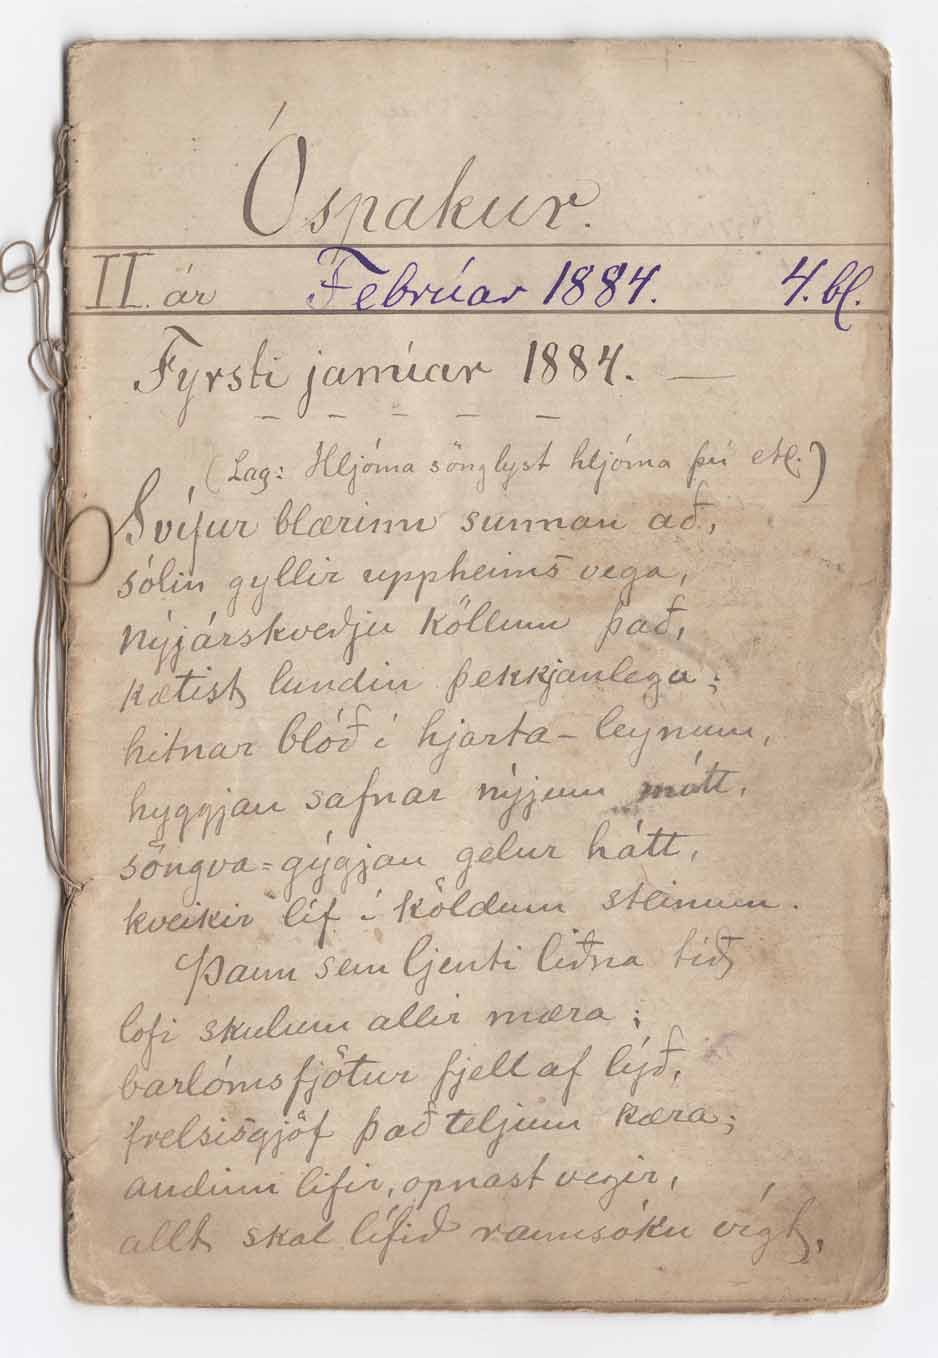 Óspakur.
II. ár Febrúar 1884. 4. bl.
Fyrsti janúar 1884. —
– – – – –
(Lag: Hljóma sönglyst hljóma þú etc.)
Svífur blærinn sunnan að,
sólin gyllir uppheims vega,
nýjárskveðju köllum það,
kætist lundin þekkjanlega;
hitnar blóð í hjarta-leynum,
hyggjan safnar nýjum mátt,
söngva=gýgjan gelur hátt,
kveikir líf í köldum steinum.
Þann sem ljenti liðna tíð
lofi skulum allir mæra;
barlóms fjötur fjell af lýð,
frelsisgjöf það teljum kæra;
andinn lifir, opnast vegir,
allt skal lífið rannsókn vígt,